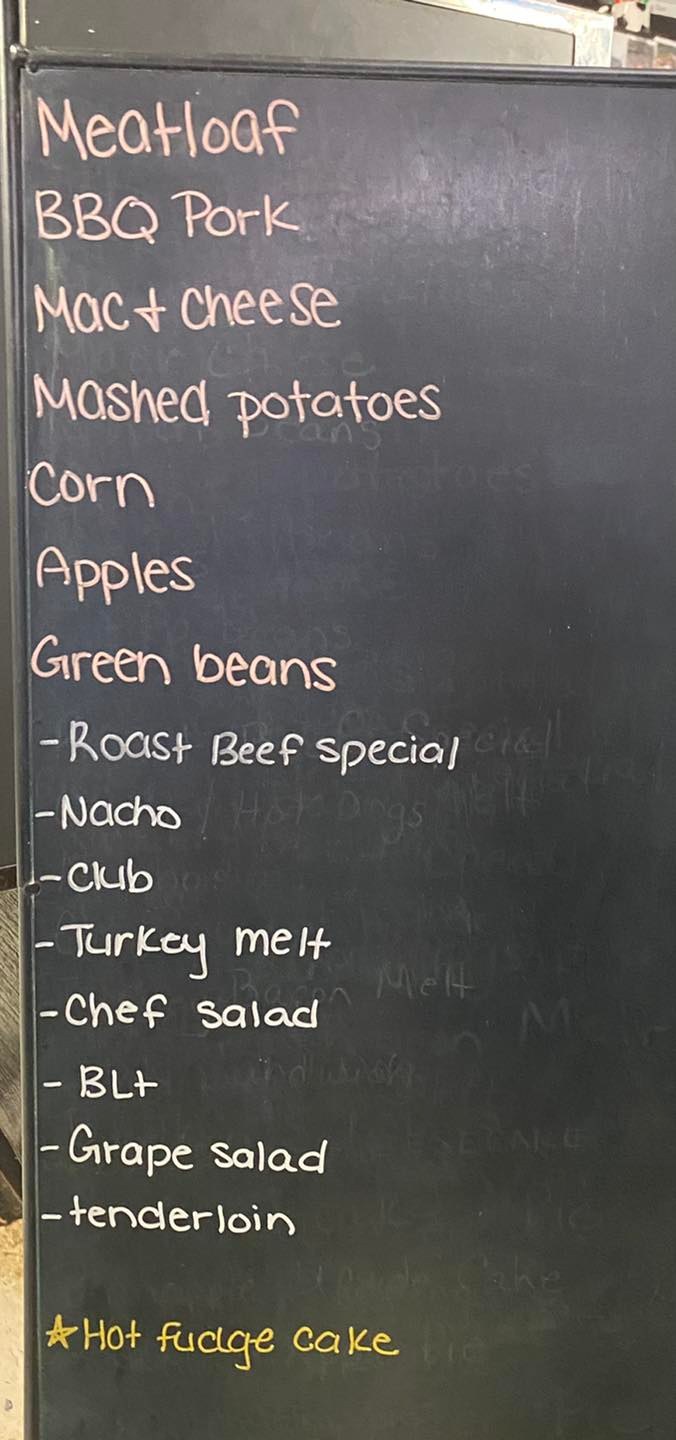 Meatloaf
BBQ Pork
Mac + cheese
Mashed potatoes
Corn
Apples
Green beans
-Roast Beef special
-Nacho
-Club
-Turkey melt
-Chef salad
- BLt
-Grape salad
-tenderloin
☆Hot fudge cake